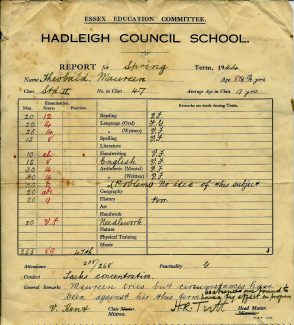 ESSEX EDUCATION COMMITTEE.
HADLEIGH COUNCIL SCHOOL.
REPORT for Spring Term, 1944
Name Theobald. Maureen Age 8 yrs
Class Std II No. in Class 47 Average Age in Class 9 yrs
Examination Max. Score. Position. Remarks on work during Term.
20 12 Reading V.F.
20 4 Language (Oral)
" (Written) V.F.
15 8 Spelling V.F.
Literature
10 ab. Handwriting V.F.
15 8 English V.F.
20 14 Arithmetic (Mental) V.F.
" (Written) V.F.
(Problems) No idea of this subject.
20 ab. Geography
20 9 History Poor
Art
Handwork
20 V.F. Needlework
Nature
Physical Training
Music
89 47th
Attendance 268 Punctuality G
Conduct Lacks concentration.
General Remarks Maureen tries but circumstances have
been against her this term
V. Kent Class Master Mistress. Head Master Mistress.